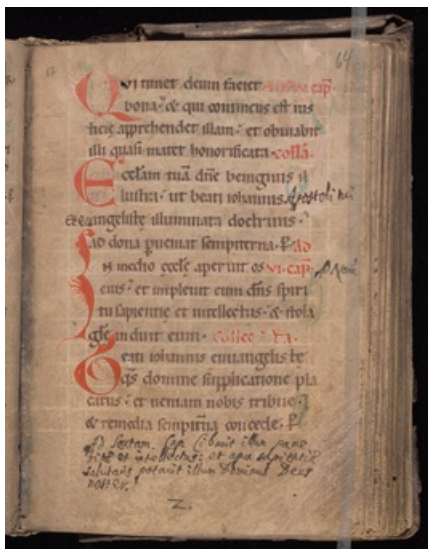 64
Qui timet deum faciet cap̃.
bona. & qui continens est ius
ticie apprehendet illam. et obviabit
illi quasi mater honorificata. colła.
Ecclam tuã dñe benignus il
lustra. ut beati iohannis Apostoli tui
Evangeliste illuminata doctrinis.
ad dona pveniat sempiterna. P ad
In medio eccle aperuit os vi. cap̃.
eius. et implevit eum dñs spiri
tu sapientie et intellectus. & stola
glẽ induit eum. Collecta.
Beati iohannis euuangeliste
qs domine supplicatione pla
catus. et veniam nobis tribue.
& remedia sempitna concede. P
Ad Sextam. Cap. Cibavit illum pane
vitæ et intellectus: et aqua sapientiæ
salutaris potavit illum Dominus Deus
noster.
2.